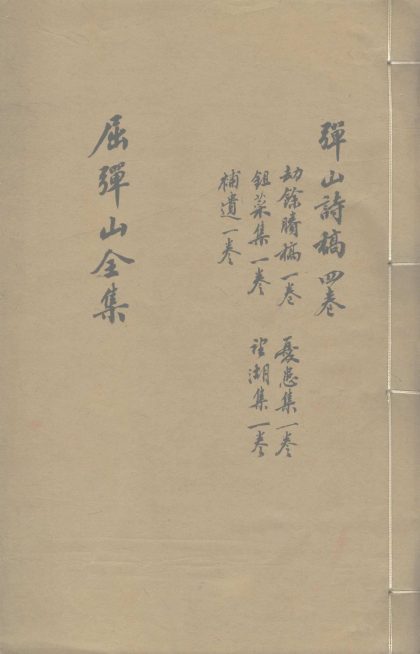 彈山詩稿四卷
劫餘賸稿一卷　憂患集一卷
鉏菜集一卷　望湖集一卷
補遺一卷
屈彈山全集